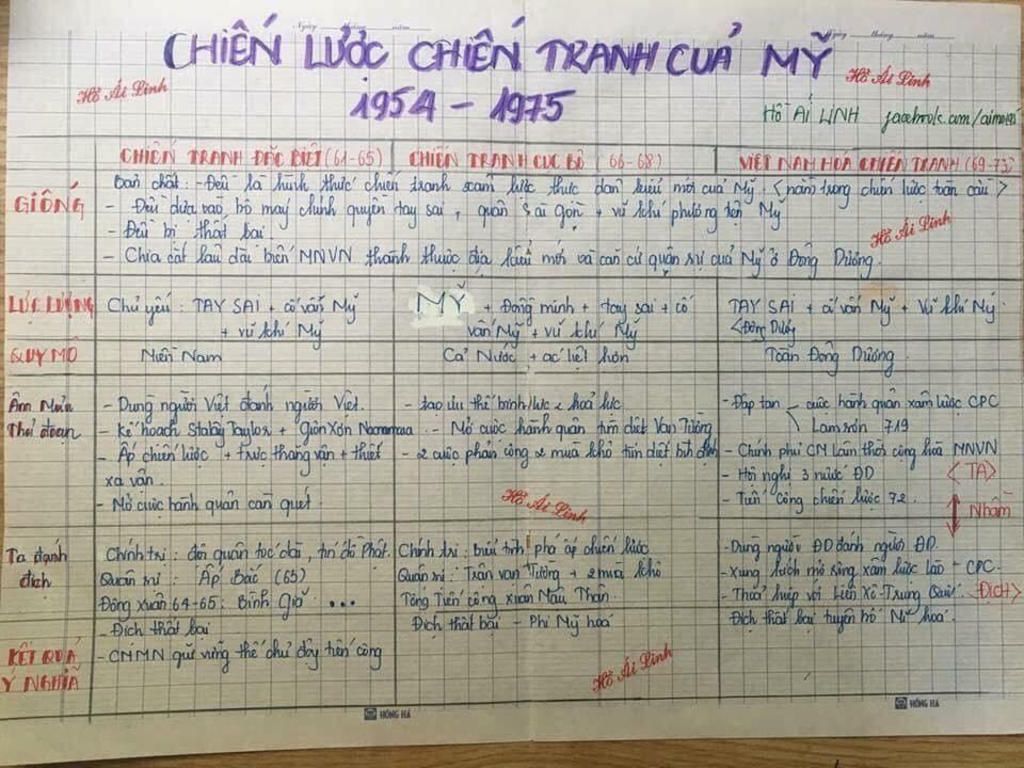 CHIẾN LƯỢC CHIẾN TRANH CUẢ MỸ
1954 - 1975
Hồ Ái Linh
Hồ Ái Linh
HỒ ÁI LINH
CHIẾN TRANH ĐẶC BIỆT (61-65)
CHIẾN TRANH CỤC BỘ (66-68)
VIỆT NAM HÓA CHIẾN TRANH (69-73)
GIỐNG
Bản chất: - Đều là hình thức chiến tranh xâm lược thực dân kiểu mới cuả Mỹ. <nằm trong chiến lược toàn cầu>
- Đều dựa vào bộ máy chính quyền tay sai, quân Sài Gòn + vũ khí phương tiện Mỹ
- Đều bị thất bại
- Chia cắt lâu dài biến MNVN thành thuộc địa kiểu mới và căn cứ quân sự cuả Mỹ ở Đông Dương.
Hồ Ái Linh
LỰC LƯỢNG
Chủ yếu: TAY SAI + cố vấn Mỹ
+ vũ khí Mỹ
MỸ + Đồng minh + tay sai + cố
vấn Mỹ + vũ khí Mỹ
TAY SAI + cố vấn Mỹ + Vũ khí Mỹ
<Đông Dương
QUY MÔ
Miền Nam
Cả Nước + ác liệt hơn
Toàn Đông Dương
Âm Mưu
Thủ đoạn
- Dùng người Việt đánh người Việt.
- Kế hoạch Stalây Taylor + Giôn Xơn Nacmamaa
- Ấp chiến lược + trực thăng vận + thiết
xa vận.
- Mở cuộc hành quân càn quét
- tạo ưu thế binh lực & hoả lực
- Mở cuộc hành quân tìm diệt Vạn Tường
- 2 cuộc phản công 2 mùa khô tìm diệt bình định
Hồ Ái Linh
- Đập tan cuộc hành quân xâm lược CPC
Lam sơn 719
- Chính phủ CM Lâm thời cộng hoà MNVN
- Hội nghị 3 nước ĐD
<TA>
- Tiến công chiến lược 72.
Nhầm
Ta đánh
địch
Chính trị: đội quân tóc dài, tín đồ Phật.
Quân sự: Ấp Bắc (65)
Đông xuân 64-65: Bình Giã ...
- Địch thất bại
Chính trị: biểu tình phá ấp chiến lược
Quân sự: Trận vạn Tường + 2 mùa khô
Tổng Tiến công xuân Mậu Thân
Địch thất bại - Phi Mỹ hoá
- Dùng người ĐD đánh người ĐD.
- Xung kích mở rộng xâm lược Lào - CPC.
- Thoả hiệp với Liên Xô-Trung Quốc. ĐỊCH>
Địch thất bại tuyên bố Mĩ hoá.
KẾT QUẢ
Ý NGHĨA
- CMMN giữ vững thế chủ động tiến công
Hồ Ái Linh
HỒNG HÀ
HỒNG HÀ